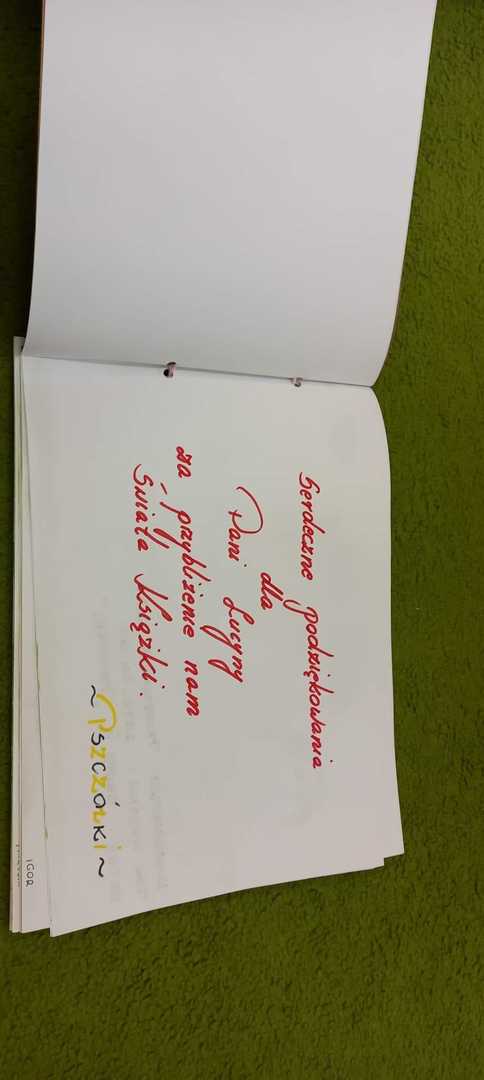 Serdeczne podziękowania
dla
Pani Lucyny
za przybliżenie nam
Świata Książki.
~PSZCZÓŁKI~
IGOR